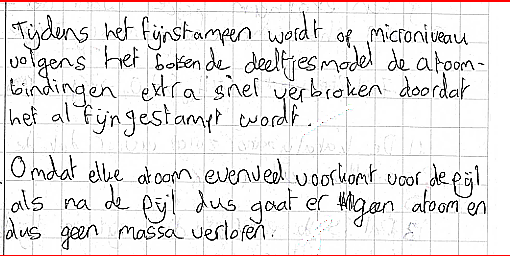 Tijdens het fijnstampen wordt op microniveau
volgens het botsende deeltjesmodel de atoom-
bindingen extra snel verbroken doordat
het al fijngestampt wordt.
Omdat elke atoom evenveel voorkomt voor de pijl
als na de pijl dus gaat er geen atoom en
dus geen massa verloren.